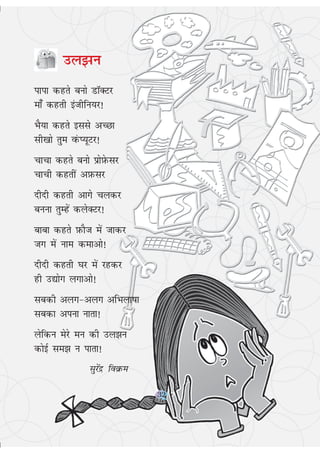 उलझन
पापा कहते बनो डॉक्टर
माँ कहती इंजीनियर!
भैया कहते इससे अच्छा
सीखो तुम कंप्यूटर!
चाचा कहते बनो प्रोफ़ेसर
चाची कहतीं अफ़सर
दीदी कहती आगे चलकर
बनना तुम्हें कलेक्टर!
बाबा कहते फ़ौज में जाकर
जग में नाम कमाओ!
दीदी कहती घर में रहकर
ही उद्योग लगाओ!
सबकी अलग-अलग अभिलाषा
सबका अपना नाता!
लेकिन मेरे मन की उलझन
कोई समझ न पाता!
सुरेंद्र विक्रम